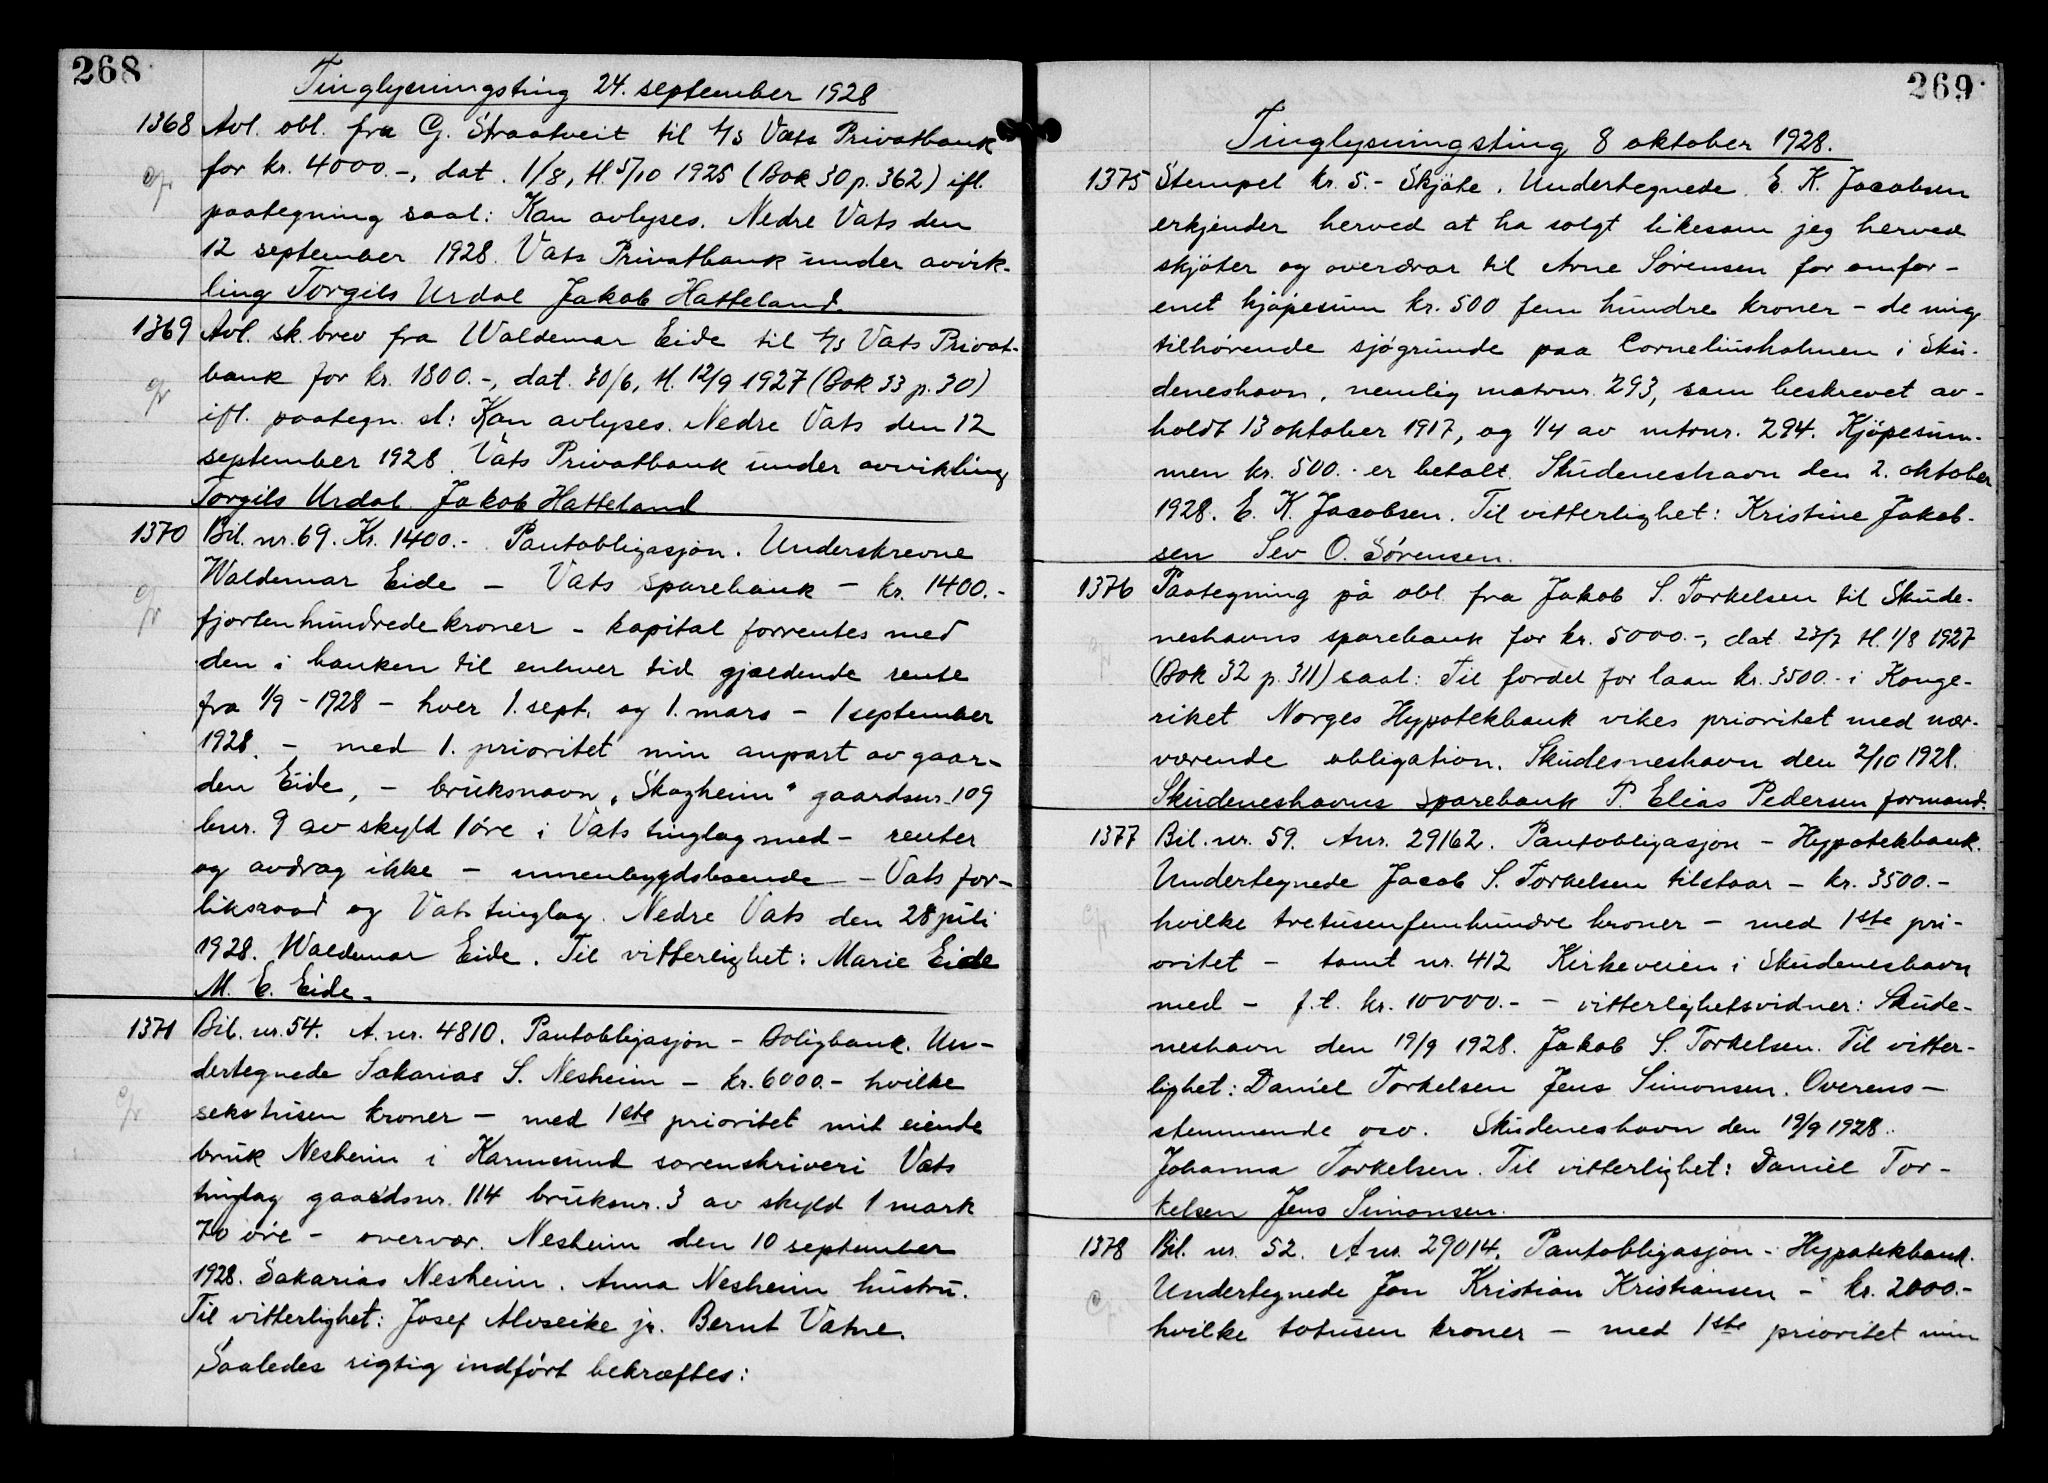 268
Tinglysningsting 24. september 1928
1368 Avl. obl. fra G. Straatveit til A/S Vats Privatbank
for kr. 4000.-, dat. 1/8, tl. 5/10 1925 (Bok 30 p. 362) ifl.
paategning saal: Kan avlyses. Nedre Vats den
12 september 1928. Vats Privatbank under avvik-
ling Torgils Urdal Jakob Hatteland.
1369 Avl. sk.brev fra Waldemar Eide til A/S Vats Privat-
bank for kr. 1800.-, dat. 30/6, tl. 12/9 1927 (Bok 33 p. 30)
ifl. paategn. sl: Kan avlyses. Nedre Vats den 12
september 1928. Vats Privatbank under avvikling
Torgils Urdal. Jakob Hatteland
1370 Bil. nr. 69. Kr. 1400.- Pantobligasjon. Underskrevne
Waldemar Eide - Vats sparebank - kr. 1400.-
fjortenhundredekroner - kapital forrentes med
den i banken til enhver tid gjældende rente
fra 1/9 - 1928 - hver 1. sept. og 1. mars - 1 september
1928. - med 1. prioritet min anpart av gaar-
den Eide, - bruksnavn „Skogheim" gaardsnr. 109
bnr. 9 av skyld 1 øre i Vats tinglag med - renter
og avdrag ikke - innenbygdsboende - Vats for-
liksraad og Vats tinglag. Nedre Vats den 28 juli
1928. Waldemar Eide. Til vitterlighet: Marie Eide
M. E. Eide.
1371 Bil. nr. 54. A. nr. 4810. Pantobligasjon - Boligbank. Un-
dertegnede Sakarias S. Nesheim - kr. 6000.- hvilke
sekstusen kroner - med 1ste prioritet mit eiende
bruk Nesheim i Karmsund sorenskriveri Vats
tinglag gaardsnr. 114 bruksnr. 3 av skyld 1 mark
70 øre - overvær. Nesheim den 10 september
1928. Sakarias Nesheim. Anna Nesheim hustru.
Til vitterlighet: Josef Alvseike jr. Bernt Vatne.
Saaledes rigtig indført bekræftes:
269
Tinglysningsting 8 oktober 1928.
1375 Stempel kr. 5.- Skjøte. Undertegnede E. K. Jacobsen
erkjender herved at ha solgt likesom jeg herved
skjøter og overdrar til Arne Sørensen for omfor-
enet kjøpesum kr. 500 fem hundre kroner - de mig
tilhørende sjøgrunde paa Corneliusholmen i Sku-
deneshavn, nemlig matrnr. 293, som beskrevet av-
holdt 13 oktober 1917, og 1/4 av mtrnr. 294. Kjøpesum-
men kr. 500.- er betalt. Skudeneshavn den 2. oktober
1928. E. K. Jacobsen. Til vitterlighet: Kristine Jakob-
sen Sev O. Sørensen.
1376 Paategning på obl. fra Jakob S. Torkelsen til Skude-
neshavns sparebank for kr. 5000.-, dat 23/7 tl. 1/8 1927
(Bok 32 p. 311) saal: Til fordel for laan kr. 3500.- i Konge-
riket Norges Hypotekbank vikes prioritet med nær-
værende obligation. Skudesneshavn den 2/10 1928.
Skudeneshavns Sparebank P. Elias Pedersen formand.
1377 Bil. nr. 59. Anr. 29162. Pantobligasjon - Hypotekbank.
Undertegnede Jacob S. Torkelsen tilstaar - kr. 3500.-
hvilke tretusenfemhundre kroner - med 1ste pri-
oritet - tomt nr. 412 Kirkeveien i Skudeneshavn
med - f.t. kr. 10000.- - vitterlighetsvidner: Skude-
neshavn den 19/9 1928. Jakob S. Torkelsen. Til vitter-
lighet: Daniel Torkelsen Jens Simonsen. Overens-
stemmende osv. Skudeneshavn den 19/9 1928.
Johanna Torkelsen. Til vitterlighet: Daniel Tor-
kelsen Jens Simonsen.
1378 Bil. nr. 52. A nr. 29014. Pantobligasjon - Hypotekbank.
Undertegnede Jon Kristian Kristiansen - kr. 2000.-
hvilke totusen kroner - med 1ste prioritet min